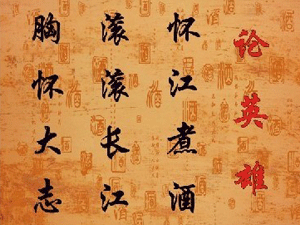 论英雄
怀江煮酒
滚滚长江
胸怀大志